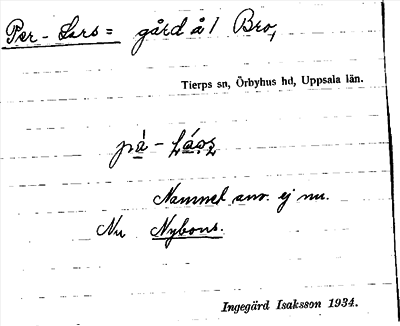 Per-Lars= gård å 1 Bro,
Tierps sn, Örbyhus hd, Uppsala län.
pà - Láọṣ
Namnet anv. ej nu.
Nu Nybons.
Ingegärd Isaksson 1934.